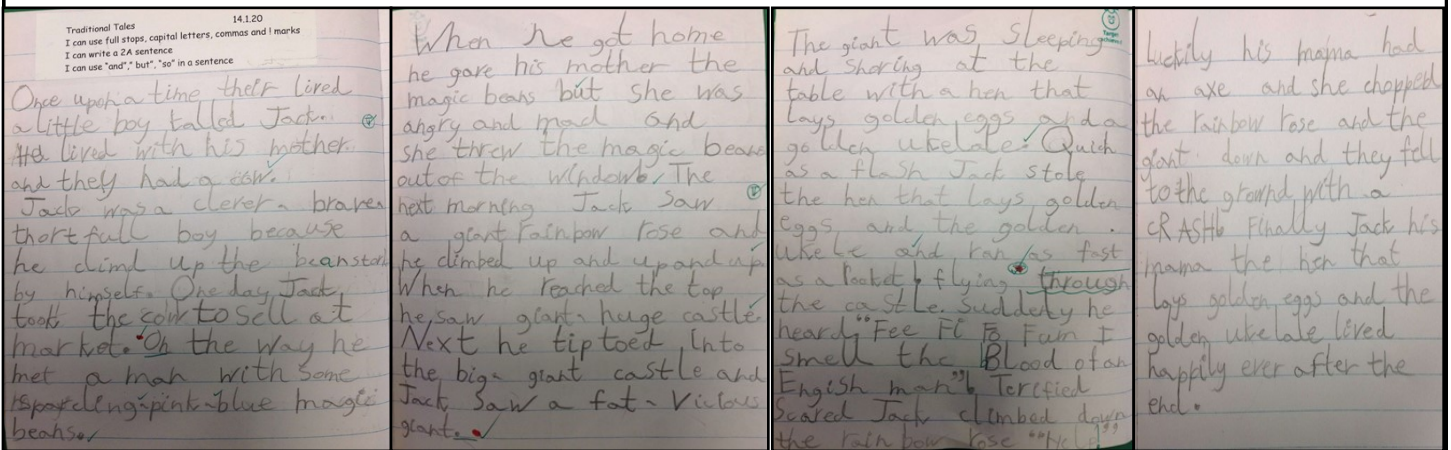 Traditional Tales 14.1.20
I can use full stops, capital letters, commas and ! marks
I can write a 2A sentence
I can use "and"," but", "so" in a sentence
Once upon a time their lived
a little boy called Jack.
He lived with his mother
and they had a cow.
Jack was a clever, brave,
thortfull boy because
he climd up the beanstork
by himself. One day Jack
took the cow to sell at
market. On the way he
met a man with some
sparcling, pink, blue magic
beans.
When he got home
he gave his mother the
magic beans but she was
angry and mad and
she threw the magic beans
out of the window. The
next morning Jack saw
a giant rainbow rose and
he climbed up and up and up
When he reached the top
he saw giant, huge castle
Next he tiptoed into
the big, giant castle and
Jack saw a fat, vicious
giant.
The giant was sleeping
and snoring at the
table with a hen that
lays golden eggs and a
golden ukelale! Quick
as a flash Jack stole
the hen that lays golden
eggs and the golden
ukele and ran as fast
as a rocket flying through
the castle. Suddely he
heard "Fee Fi Fo Fum I
smell the Blood of an
Engish man"! Terified
scared Jack climbed down
the rainbow rose "Help"
Luckily his mama had
an axe and she chopped
the rainbow rose and the
giant down and they fell
to the ground with a
cRASH! Finally Jack his
mama the hen that
lays golden eggs and the
golden ukelale lived
happily ever after the
end.